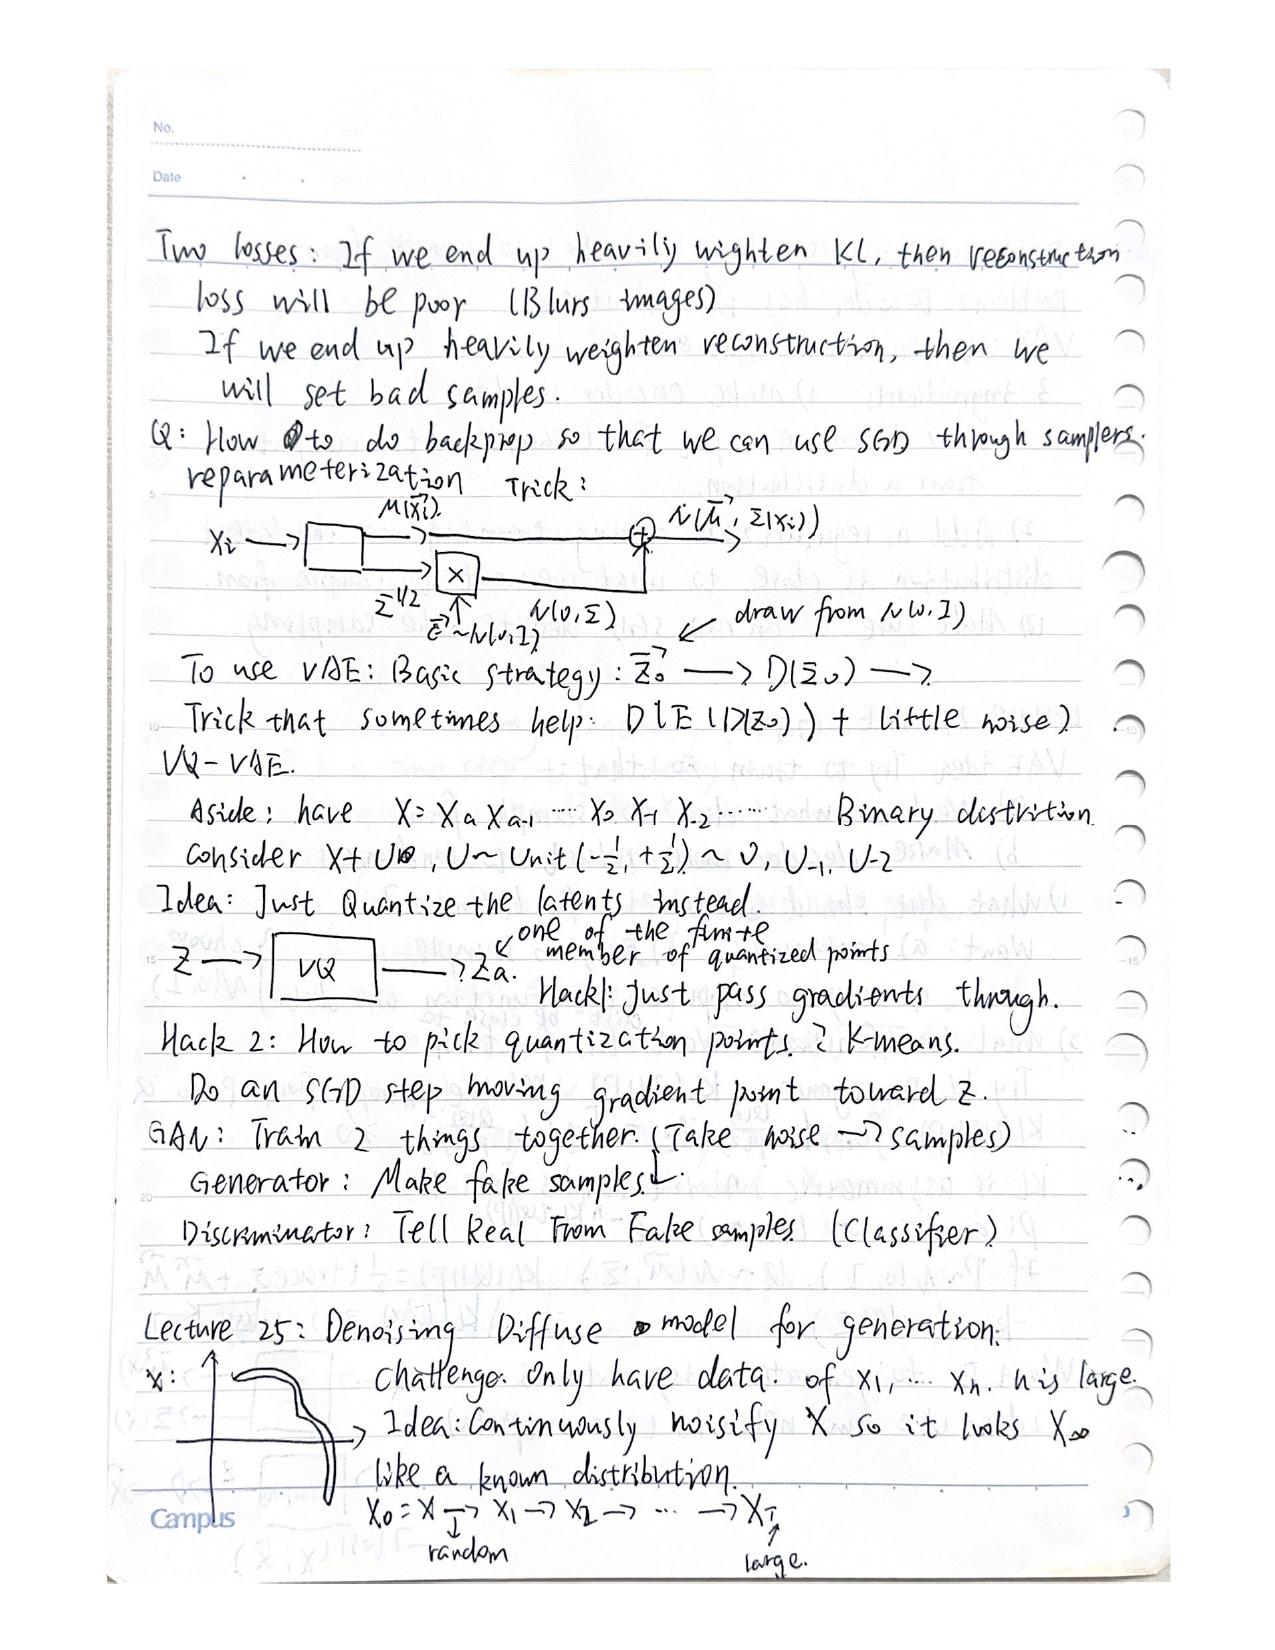 No.
Date
Two losses: If we end up heaviliy wighten KL, then reconstruction
loss will be poor (Blurs images)
If we end up heavily weighten reconstruction, then we
will set bad samples.
Q: How to do backprop so that we can use SGD through samplers.
reparameterization Trick:
μ(x⃗i) N(μ⃗, Σ(xi))
Xi + X
Σ^1/2 ε⃗ ~ N(0, I) N(0, Σ) draw from N(0, I)
To use VAE: Basic strategy: z⃗0 → D(z0) →
Trick that sometimes help: D(E(D(z0)) + little noise)
VQ-VAE.
Aside: have X = Xa Xa-1 ... X0 X-1 X-2 ...... Binary distrition
consider X+U, U ~ Unit(-1/2, +1/2) ~ 0, U-1, U-2
Idea: Just Quantize the latents instead.
Z → VQ → Za. one of the finite
member of quantized points
Hack1: just pass gradients through.
Hack 2: How to pick quantization points? K-means.
Do an SGD step moving gradient point toward Z.
GAN: Train 2 things together. (Take noise → samples)
Generator: Make fake samples.
Discriminator: Tell Real From Fake samples (Classifier)
Lecture 25: Denoising Diffuse model for generation:
X: Challenge. Only have data. of X1, ... Xn. n is large.
Idea: Continuously noisify X so it looks X∞
like a known distribution.
X0 = X → X1 → X2 → ... → XT
random large.
Campus